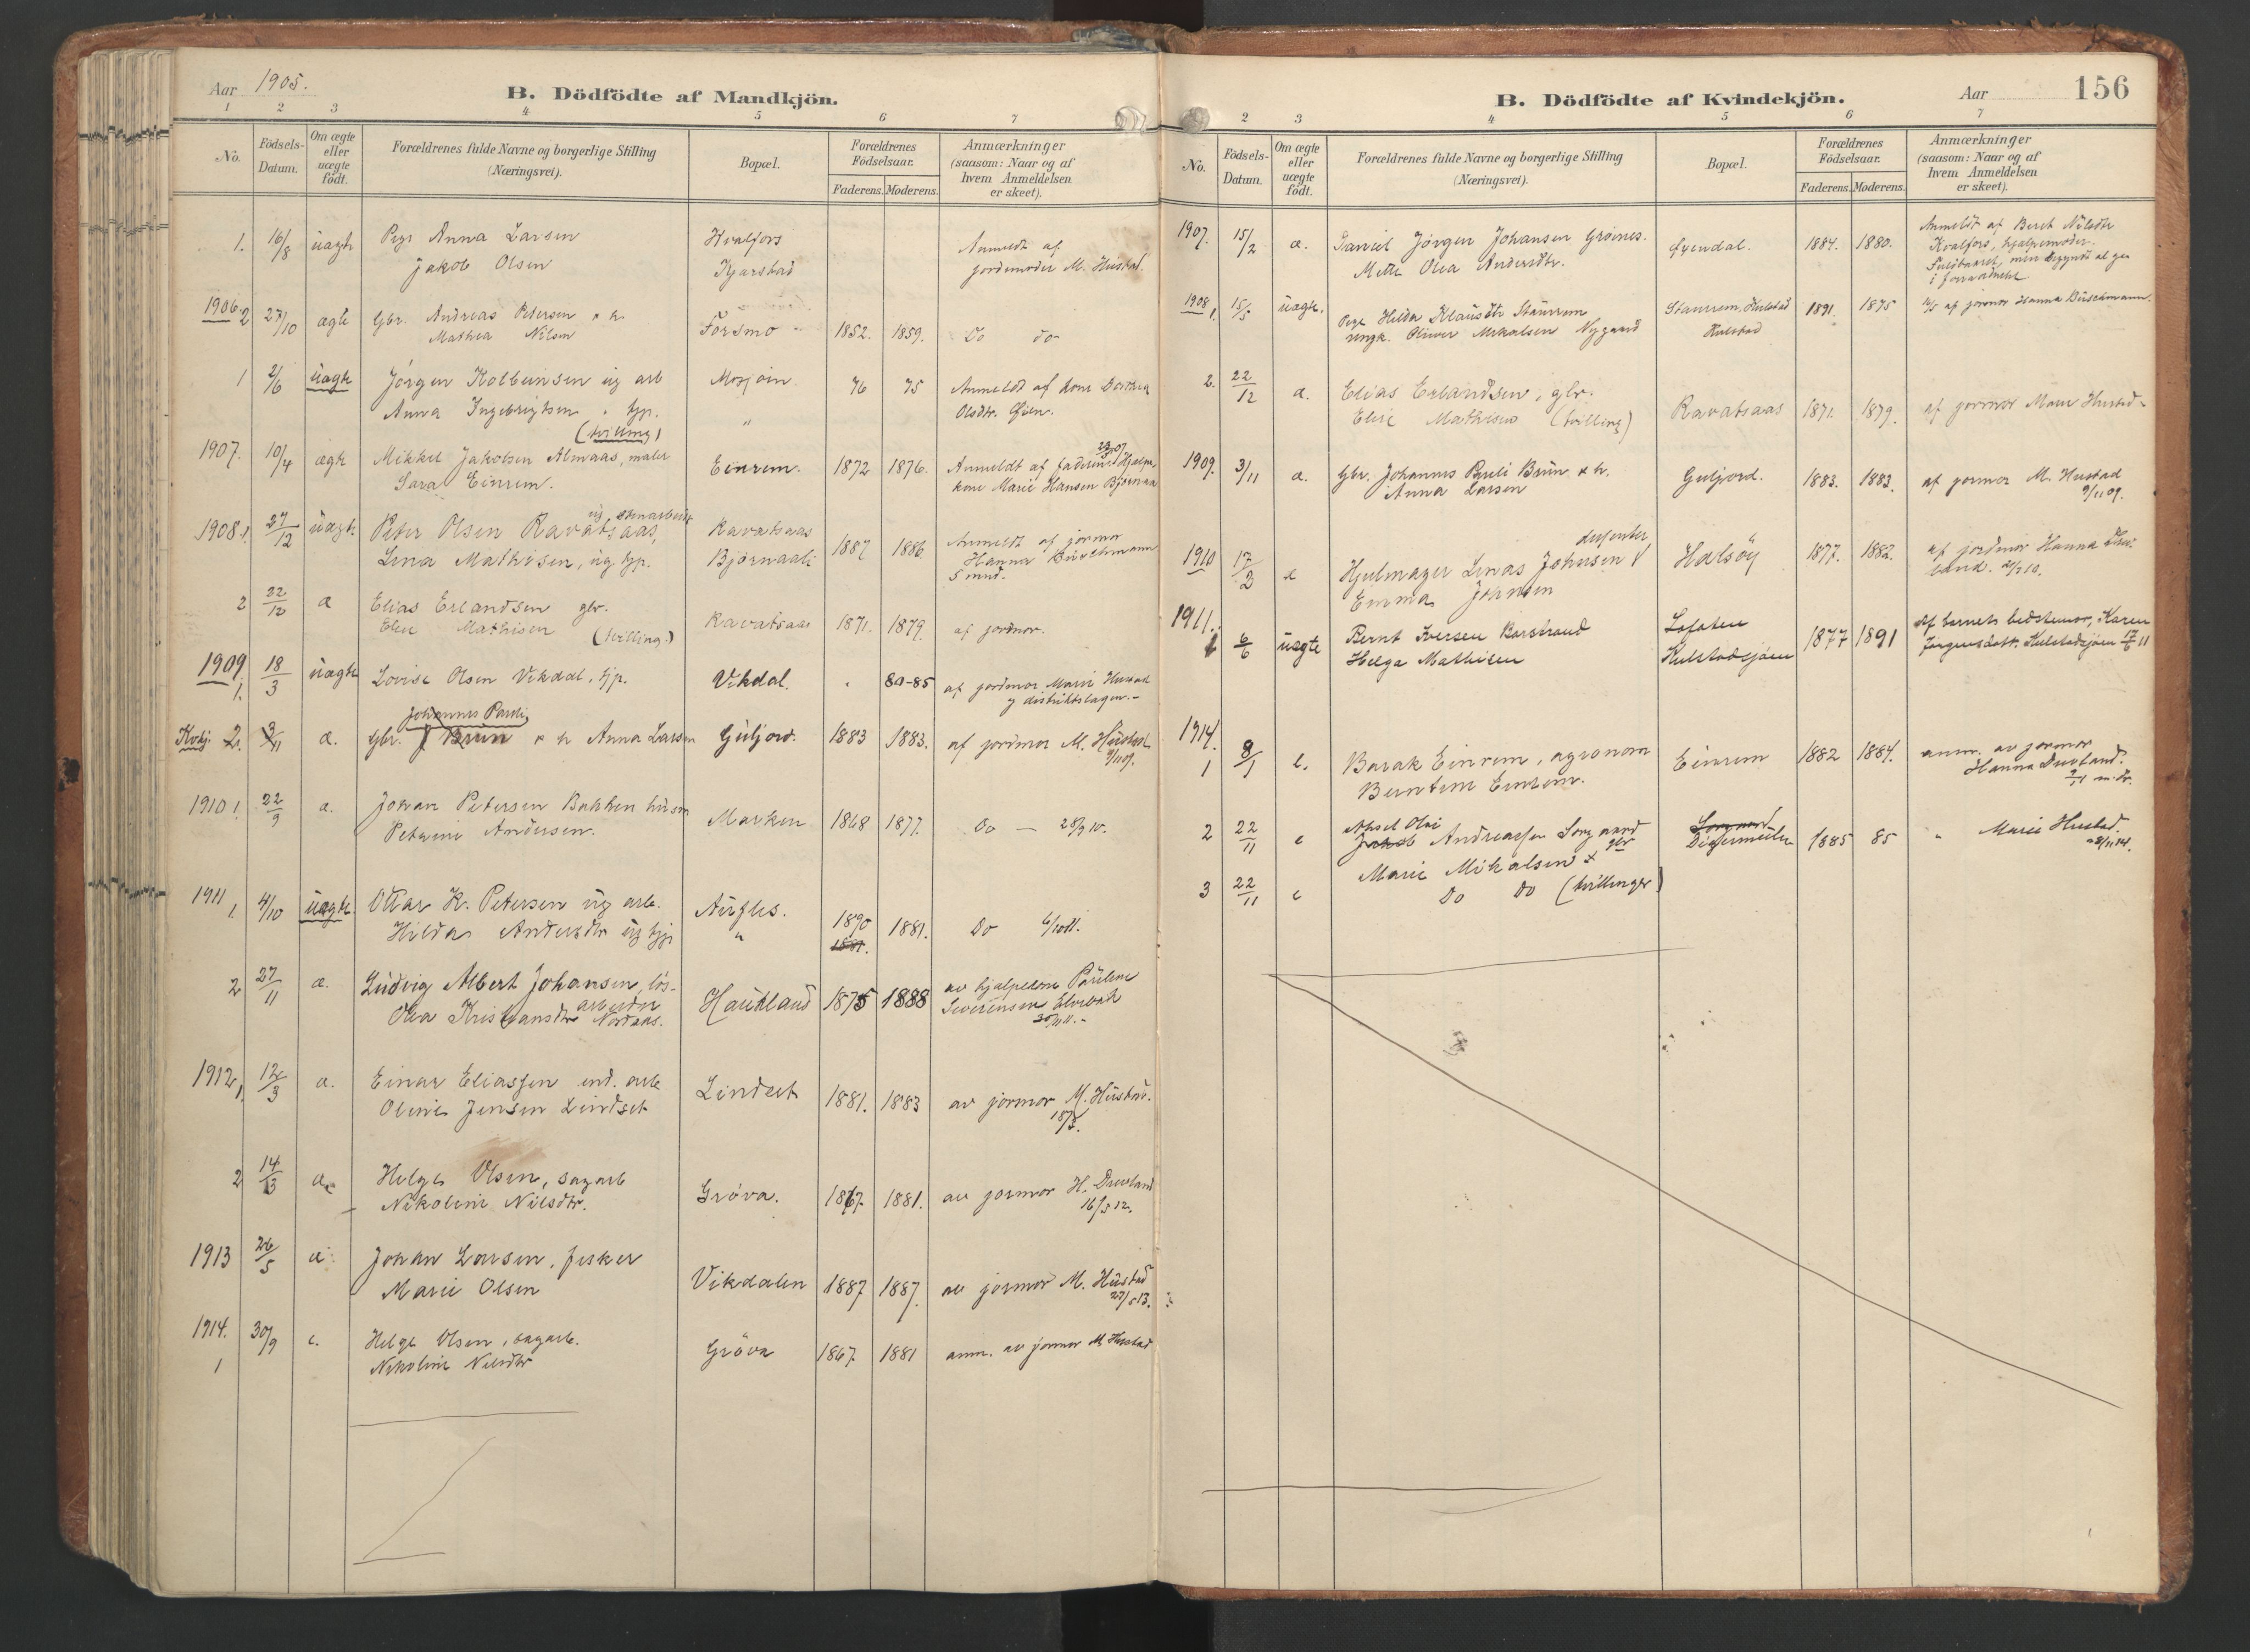 Aar 1905.
B. Dödfödte af Mandkjön.
1 2 3 4 5 6 7
No.
Födsels-Datum.
Om ægte eller uægte födt.
Forældrenes fulde Navne og borgerlige Stilling (Næringsvei).
Bopæl.
Forældrenes Födselsaar.
Faderens. Moderens.
Anmærkninger (saasom: Naar og af hvem Anmeldelsen er skeet).
1. 16/8 uægte Pige Anna Larsen Kvalfors Anmeldt af
Jakob Olsen Kjærstad jordemoder M. Hustad.
1906. 2 27/10 ægte Gbr. Andreas Petersen & h. Forsmo 1852. 1859. Do do
Mathea Nilsen
1 2/6 uægte Jörgen Kolbeinsen ug arb Mosjöin 76 75 Anmeldt af kone
Anna Ingebrigtsen " tjp. " Olsdtr. Öien.
(tvilling)
1907. 10/4 ægte Mikkel Jakobsen Almaas, maler Einrem. 1872 1876. Anmeldt af faderen. Hjælpe-
Sara Einrem. kone Marie Hansen Björnaa
1908. 1. 27/12 uægte Peter Olsen Ravatsaas, ug stenarbeider Ravatsaas 1887 1886 Anmeldt af jormor
Lina Mathisen, ug. tjp. Björnaali Hanna Buschmann
5 mnd.
2 22/12 æ Elias Erlandsen gbr. Ravatsaas 1871. 1879. af jordmor.
Elise Mathisen (tvilling.)
1909. 1. 18/3 uægte Lovise Olsen Vikdal, tjp. Vikdal. " 80-85 af jordmor Marie Hustad
og distriktslægen.-
Kvkj. 2. 3/11 æ. Gbr. Johannes Pareli J Brun & h Anna Larsen Guljord. 1883 1883. af jordmor M. Hustad
9/11 09.
1910 1. 22/9 æ. Johan Petersen Bakken husm Marken 1868 1877. Do — 28/9 10.
Petrine Andersen.
1911 1. 4/10 uægte. Ottar K. Petersen ug arb. 1890 1881. Do 6/10 11.
Hilda Andersdtr ug tjp " 1881.
2 27/11 æ. Ludvig Albert Johansen, lös- Haukland 1875 1888 av hjælpekone Pauline
arbeider Severinsen
Olea Kristiansdtr Nordaas. 30/11 11.-
1912 1. 12/3 æ. Einar Eliassen ind. arb Lindset 1881. 1883 av jormor M. Hustad.
Oline Jensen Lindset 18/3.
2 14/3 æ Helge Olsen, sagarb Gröva. 1867. 1881. av jormor H. Drevland
Nikoline Nilsdtr. 16/3 12.
1913 26/5 æ Johan Larsen, fisker Vikdalen 1887 1887. av jormor M. Hustad
Marie Olsen 27/5 13.
1914. 1 30/9 e. Helge Olsen, sagarb. Gröva 1867. 1881 anm. av jormor M. Hustad
Nikoline Nilsdtr
156
B. Dödfödte af Kvindekjön.
Aar
2 3 4 5 6 7
No.
Födsels-Datum.
Om ægte eller uægte födt.
Forældrenes fulde Navne og borgerlige Stilling (Næringsvei).
Bopæl.
Forældrenes Födselsaar.
Faderens. Moderens.
Anmærkninger (saasom: Naar og af hvem Anmeldelsen er skeet).
1907. 15/2 æ. Daniel Jörgen Johansen Gröines. Öyendal. 1884. 1880. Anmeldt af Beret Nilsdtr
Mette Olea Andersdtr. Kvalfors, hjælpemoder.
Fuldbaaret, men begyndt at gaa
i forraadnelse.
1908. 1. 15/5 uægte. Pige Hilda Klausdtr Staurem Staurem, Kulstad 1891. 1875 af jormor Hanna Buschmann.
ungk. Oliver Mikalsen Nygaard Kulstad
2. 22/12 æ. Elias Erlandsen, gbr. Ravatsaas 1871. 1879. af jormor Marie Hustad
Elise Mathisen (tvilling)
1909. 3/11 æ. Gbr. Johannes Pareli Brun & h. Guljord. 1883. 1883. af jormor M. Hustad
Anna Larsen 9/11 09.
1910 17/2 æ Hjulmager Linas Johnsen Halsöy 1877. 1882. af jordmor Hanna Drev-
Emma Johnsen land. 21/2 10.
dissenter
1911. 1 6/6 uægte Bernt Iversen Borstrand Lofoten 1877 1891 Af barnets bedstemor, Karen
Helga Mathisen Kulstadsjöen Jörgensdatt. Kulstadsjöen 17/6 11
1914. 1 8/1 e. Barak Einrem, agronom Einrem 1882 1884. anm. av jormor
Berntine Einrem. Hanna Drevland.
2 22/11 e Aksel Olai Jakob Andreassen Sorgaard gbr Sorgaard Digermulen 1885 85 " Marie Hustad.
Marie Mikalsen
3 22/11 e Do Do (tvillinger)